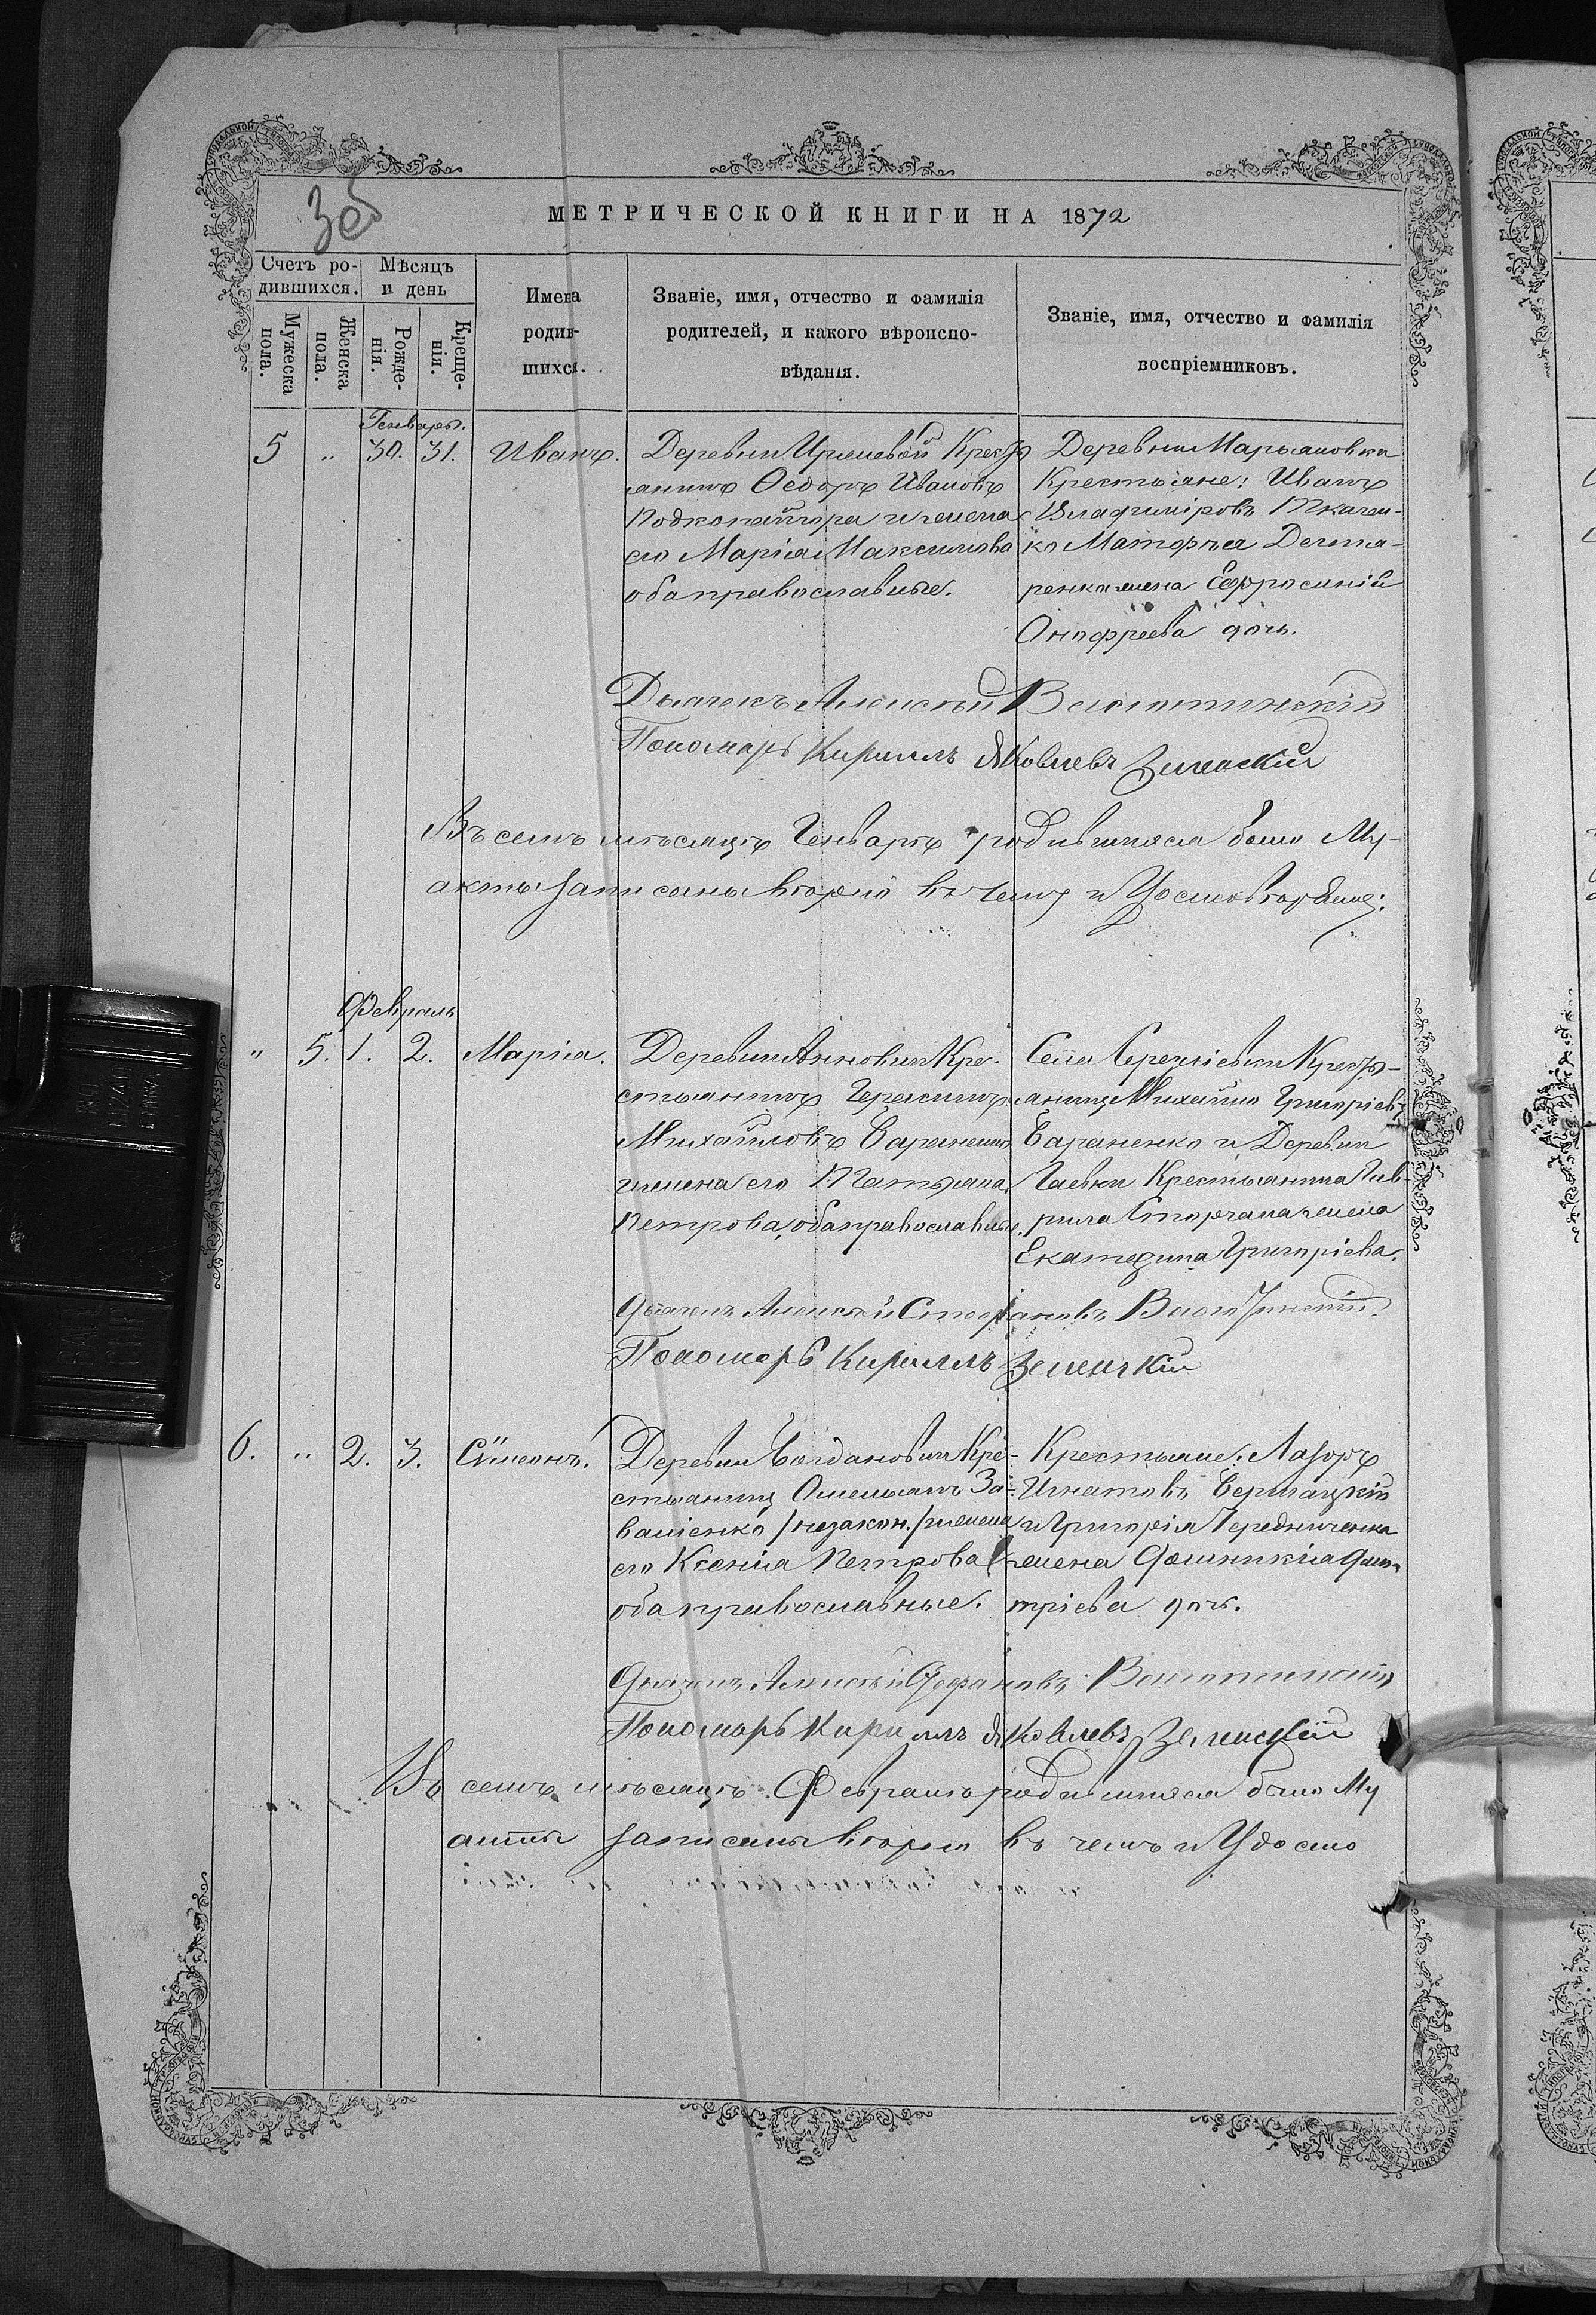 МЕТРИЧЕСКОЙ КНИГИ НА 1872
Счетъ ро-
дившихся.
Мѣсяцъ
и день
Мужеска
пола.
Женска
пола.
Рожде-
нія.
Креще-
нія.
Имена
родив-
шихся.
Званіе, имя, отчество и фамилія
родителей, и какого вѣроиспо-
вѣданія.
Званіе, имя, отчество и фамилія
воспріемниковъ.
Генварь.
5 " 30. 31. Иванъ.
Деревни Крестъ
янинъ Ѳеодоръ Ивановъ
и жена
его Марія Максимова
оба православные.
Деревни Марьяновки
Крестьяне: Иванъ
Владиміровъ Ткачен-
ко Матфея Дегтя-
ренка жена Евфросинія
Онофріева дочь.
Дьячекъ Алексѣй
Пономарь Кириллъ Яковлевъ Зеленскій
Въ семъ мѣсяцѣ Генварѣ родившихся было Му-
акты записаны вѣрно въ чемъ и
Февраль
" 5. 1. 2. Марія.
Деревни Анновки Кре-
стьянинъ Герасимъ
Михайловъ Бараненко
и жена его Татьяна
Петрова, оба православные.
Села Сергіевки Кресть-
янинъ Михаилъ Григоріевъ
Бараненко и Деревни
Гаевки Крестьянина Гав-
рила Сторчака жена
Екатерина Григоріева.
Дьячекъ Алексѣй Стефановъ
Пономарь Кириллъ Зеленскій
6. " 2. 3. Сѵмеонъ.
Деревни Богдановки Кре-
стьянинъ Омельянъ За-
валіенко /незакон./ и жена
его Ксенія Петрова
оба православные.
Крестьяне: Лазорь
Игнатовъ
и Григорія Чередниченка
жена Домникія Дми-
тріева дочь.
Дьячекъ Алексѣй Стефановъ
Пономарь Кириллъ Яковлевъ Зеленскій
Въ семъ мѣсяцѣ Февралѣ родившихся было Му
акты записаны вѣрно въ чемъ и Удосто